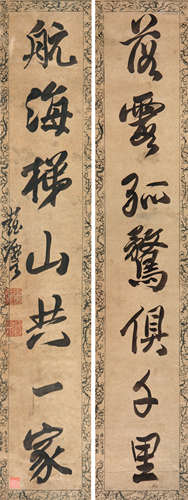 落霞孤鶩俱千里
航海梯山共一家